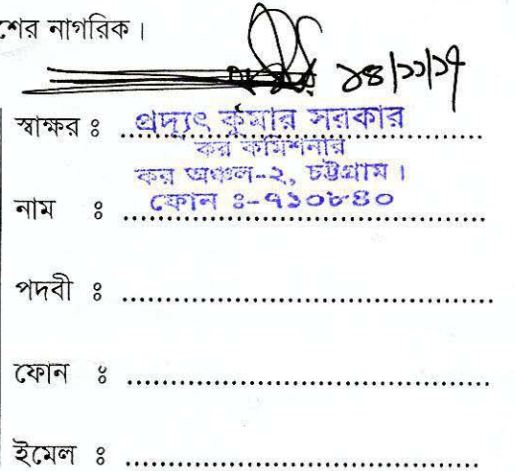 শের নাগরিক।
১৪/১১/১৭
স্বাক্ষর ঃ প্রদ্যুৎ কুমার সরকার
কর কমিশনার
কর অঞ্চল-২, চট্টগ্রাম।
নাম ঃ ফোন ঃ-৭১০৮৪০
পদবী ঃ
ফোন ঃ
ইমেল ঃ